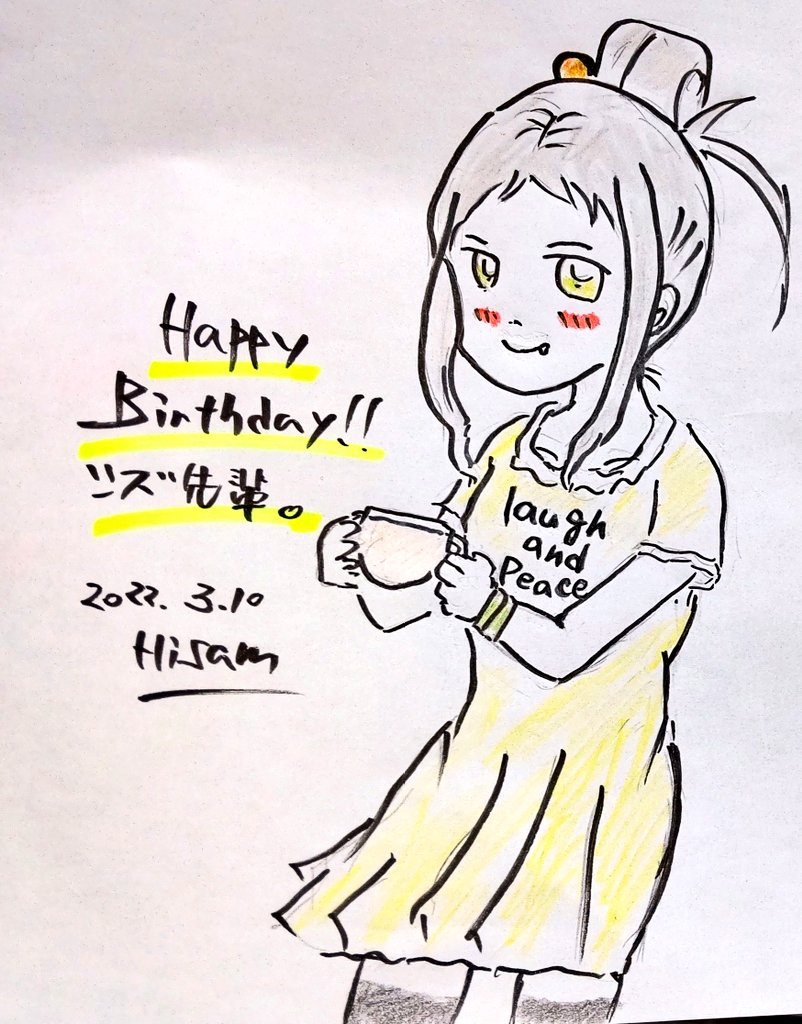 Happy
Birthday!!
シズ先輩。
2022. 3.10
Hisam
laugh
and
Peace